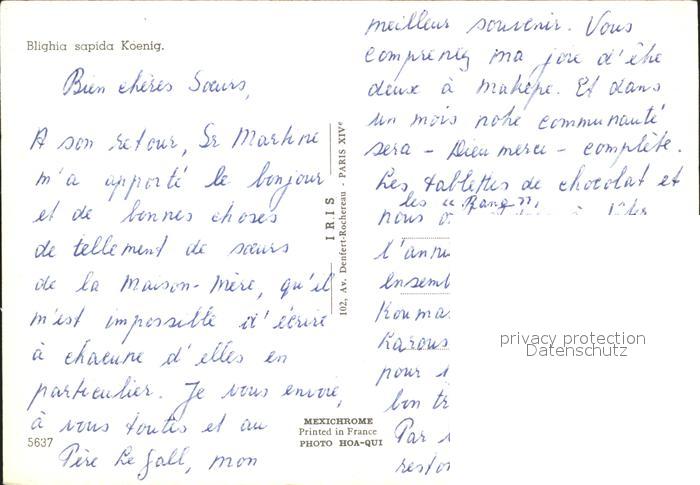 Blighia sapida Koenig.
Bien chères Sœurs,
A son retour, Sr Martine
m'a apporté le bonjour
et de bonnes choses
de tellement de sœurs
de la Maison-Mère, qu'il
m'est impossible d'écrire
à chacune d'elles en
particulier. Je vous envoie,
à vous toutes et au
Père Le Gall, mon
5637
IRIS
102, Av. Denfert-Rochereau - PARIS XIVe
MEXICHROME
Printed in France
PHOTO HOA-QUI
meilleur souvenir. Vous
comprenez ma joie d'être
deux à Mahépé. Et dans
un mois notre communauté
sera - Dieu merci - complète.
Les tablettes de chocolat et
les "
nous
l'ann
ensemb
Kouma
Karous
pour
bon tr
Par
resto
privacy protection
Datenschutz